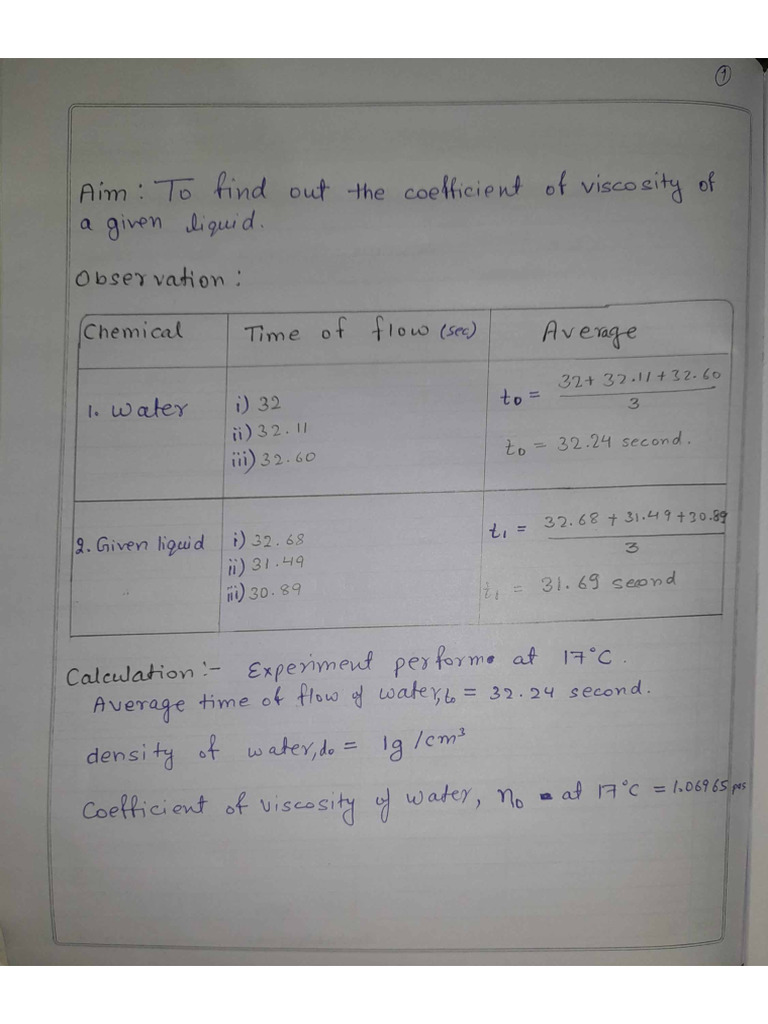 1
Aim : To find out the coefficient of viscosity of
a given liquid.
Observation :
Chemical Time of flow (sec) Average
1. Water
i) 32
ii) 32.11
iii) 32.60
t₀ = 32 + 32.11 + 32.60
3
t₀ = 32.24 second.
2. Given liquid
i) 32.68
ii) 31.49
iii) 30.89
t₁ = 32.68 + 31.49 + 30.89
3
t₁ = 31.69 second
Calculation :- Experiment perform at 17°C.
Average time of flow of water, t₀ = 32.24 second.
density of water, d₀ = 1g/cm³
Coefficient of viscosity of water, η₀ at 17°C = 1.06965 pas